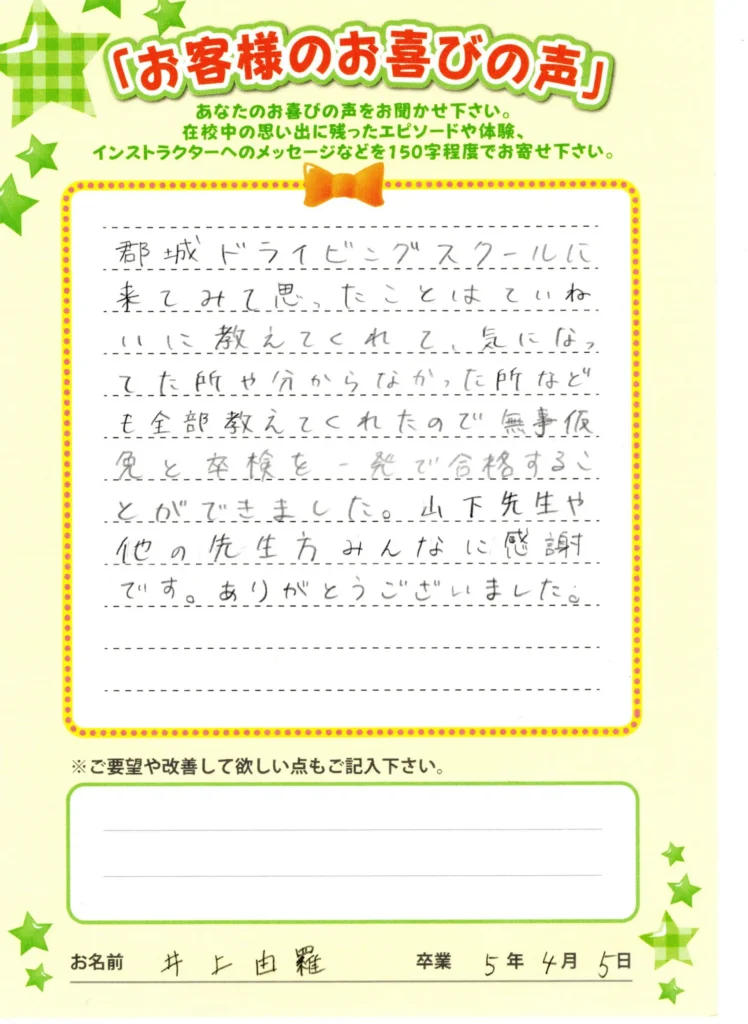 「お客様のお喜びの声」
あなたのお喜びの声をお聞かせ下さい。
在校中の思い出に残ったエピソードや体験、
インストラクターへのメッセージなどを150字程度でお寄せ下さい。
郡城ドライビングスクールに
来てみて思ったことはていね
いに教えてくれて、気になっ
てた所や分からなかった所など
も全部教えてくれたので無事仮
免と卒検を一発で合格するこ
とができました。山下先生や
他の先生方みんなに感謝
です。ありがとうございました。
※ご要望や改善して欲しい点もご記入下さい。
お名前 井上由羅 卒業 5年4月5日